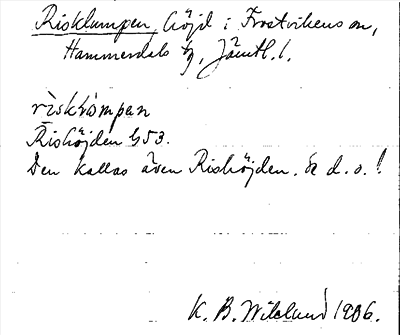 Risklumpen, höjd i Frostvikens sn,
Hammerdals tg, Jämtl. l.
Rishöjden 53.
Den kallas även Rishöjden. Se d. o.!
K. B. Wiklund 1906.